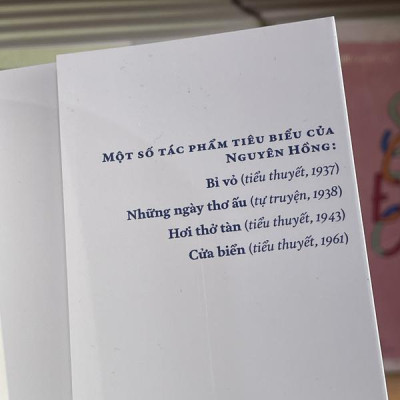 MỘT SỐ TÁC PHẨM TIÊU BIỂU CỦA
NGUYÊN HỒNG:
Bỉ vỏ (tiểu thuyết, 1937)
Những ngày thơ ấu (tự truyện, 1938)
Hơi thở tàn (tiểu thuyết, 1943)
Cửa biển (tiểu thuyết, 1961)